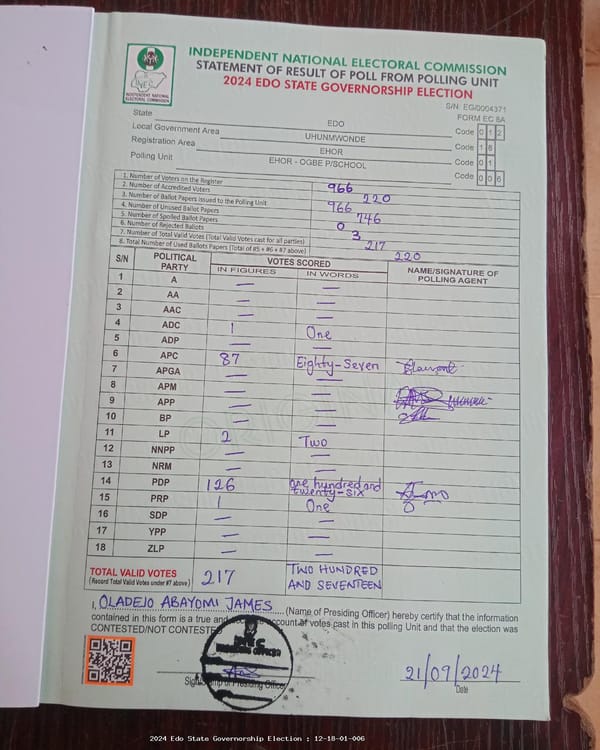 INDEPENDENT NATIONAL ELECTORAL COMMISSION
STATEMENT OF RESULT OF POLL FROM POLLING UNIT
2024 EDO STATE GOVERNORSHIP ELECTION
INEC
INDEPENDENT NATIONAL ELECTORAL COMMISSION
S/N: EG/0004371
FORM EC 8A
State EDO Code 0 1 2
Local Government Area UHUNMWONDE Code 1 8
Registration Area EHOR Code 0 1
Polling Unit EHOR - OGBE P/SCHOOL Code 0 0 6
1. Number of Voters on the Register 966
2. Number of Accredited Voters 220
3. Number of Ballot Papers Issued to the Polling Unit 966
4. Number of Unused Ballot Papers 746
5. Number of Spoiled Ballot Papers 0
6. Number of Rejected Ballots 3
7. Number of Total Valid Votes (Total Valid Votes cast for all parties) 217
8. Total Number of Used Ballots Papers (Total of #5 + #6 + #7 above) 220
S/N POLITICAL PARTY VOTES SCORED NAME/SIGNATURE OF POLLING AGENT
IN FIGURES IN WORDS
1 A — —
2 AA — —
3 AAC — —
4 ADC 1 One
5 ADP — —
6 APC 87 Eighty-Seven
7 APGA — —
8 APM — —
9 APP — —
10 BP — —
11 LP 2 Two
12 NNPP — —
13 NRM — —
14 PDP 126 One hundred and twenty-six
15 PRP 1 One
16 SDP — —
17 YPP — —
18 ZLP — —
TOTAL VALID VOTES 217 TWO HUNDRED AND SEVENTEEN
(Record Total Valid Votes under #7 above)
I, OLADEJO ABAYOMI JAMES (Name of Presiding Officer) hereby certify that the information
contained in this form is a true and account of votes cast in this polling Unit and that the election was
CONTESTED/NOT CONTESTED
INEC
PRESIDING OFFICER
of Presiding Officer
21/09/2024
Date
2024 Edo State Governorship Election : 12-18-01-006